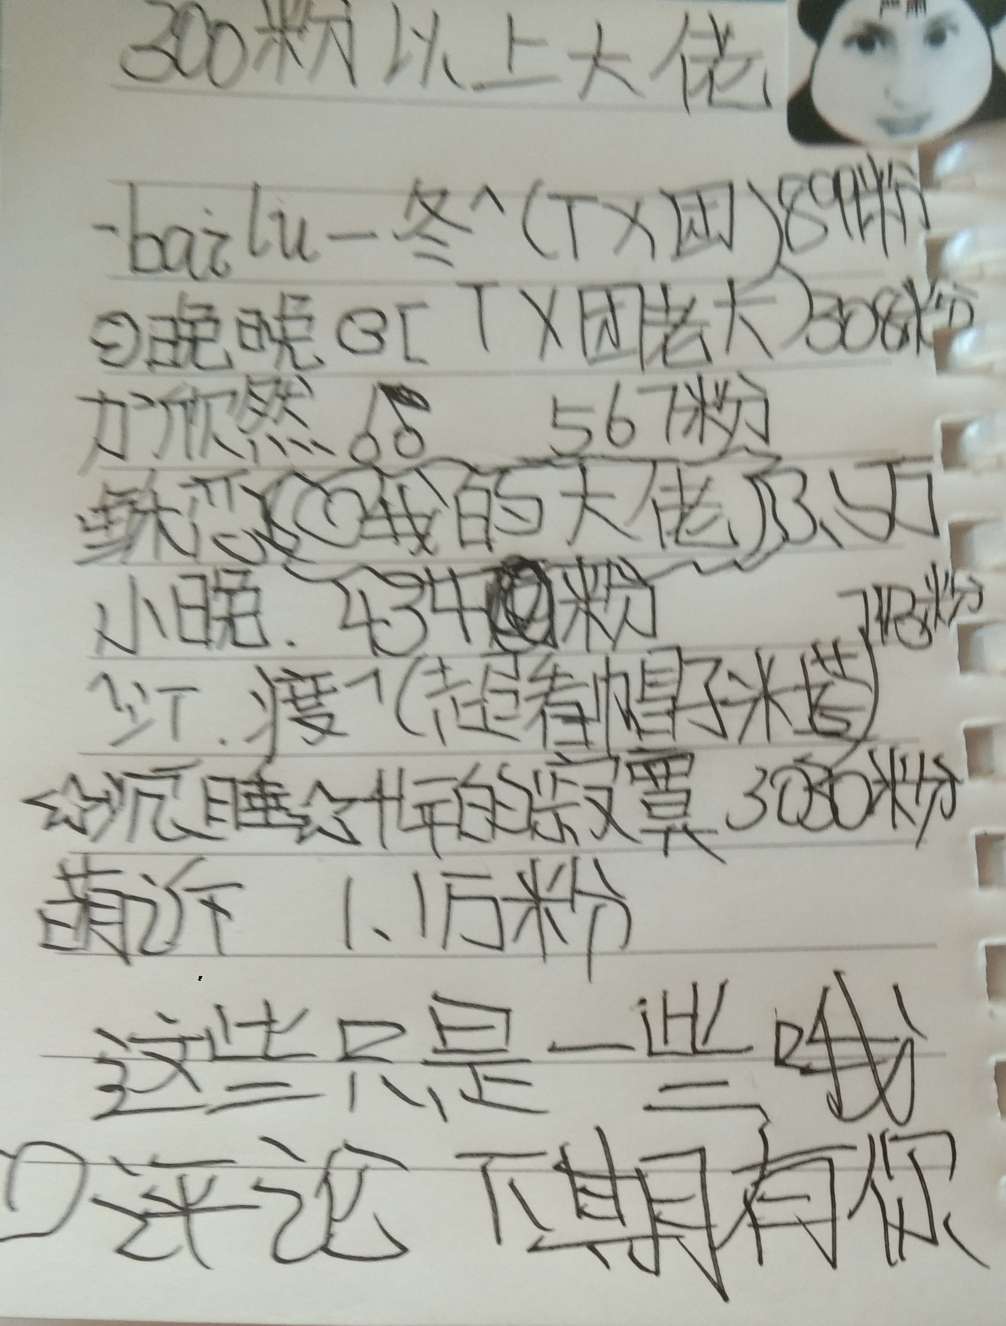 300粉以上大佬
严肃
-bailu-冬^(TX团)899粉
晚晚 [TX团老大)308粉
欣然 567粉
恋 我的大佬 3.5万
小晚. 434粉
713粉
江.渡^(走着帽子米塔)
☆沉睡☆十年的寂寞 3030粉
萌许 1.1万粉
这些只是一些哦
评论 下期有你